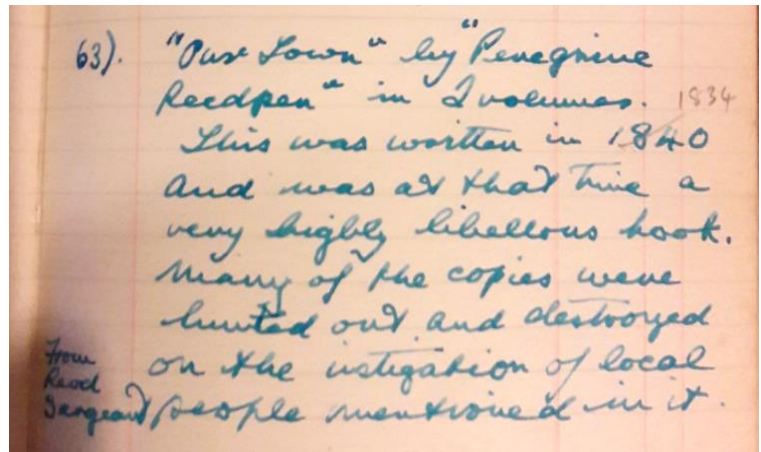 63). "Our Town" by "Peregrine
Reedpen" in 2 volumes. 1834
This was written in 1840
and was at that time a
very highly libellous book.
Many of the copies were
hunted out and destroyed
From
on the istigation of local
Revd
Sergeant people mentioned in it.